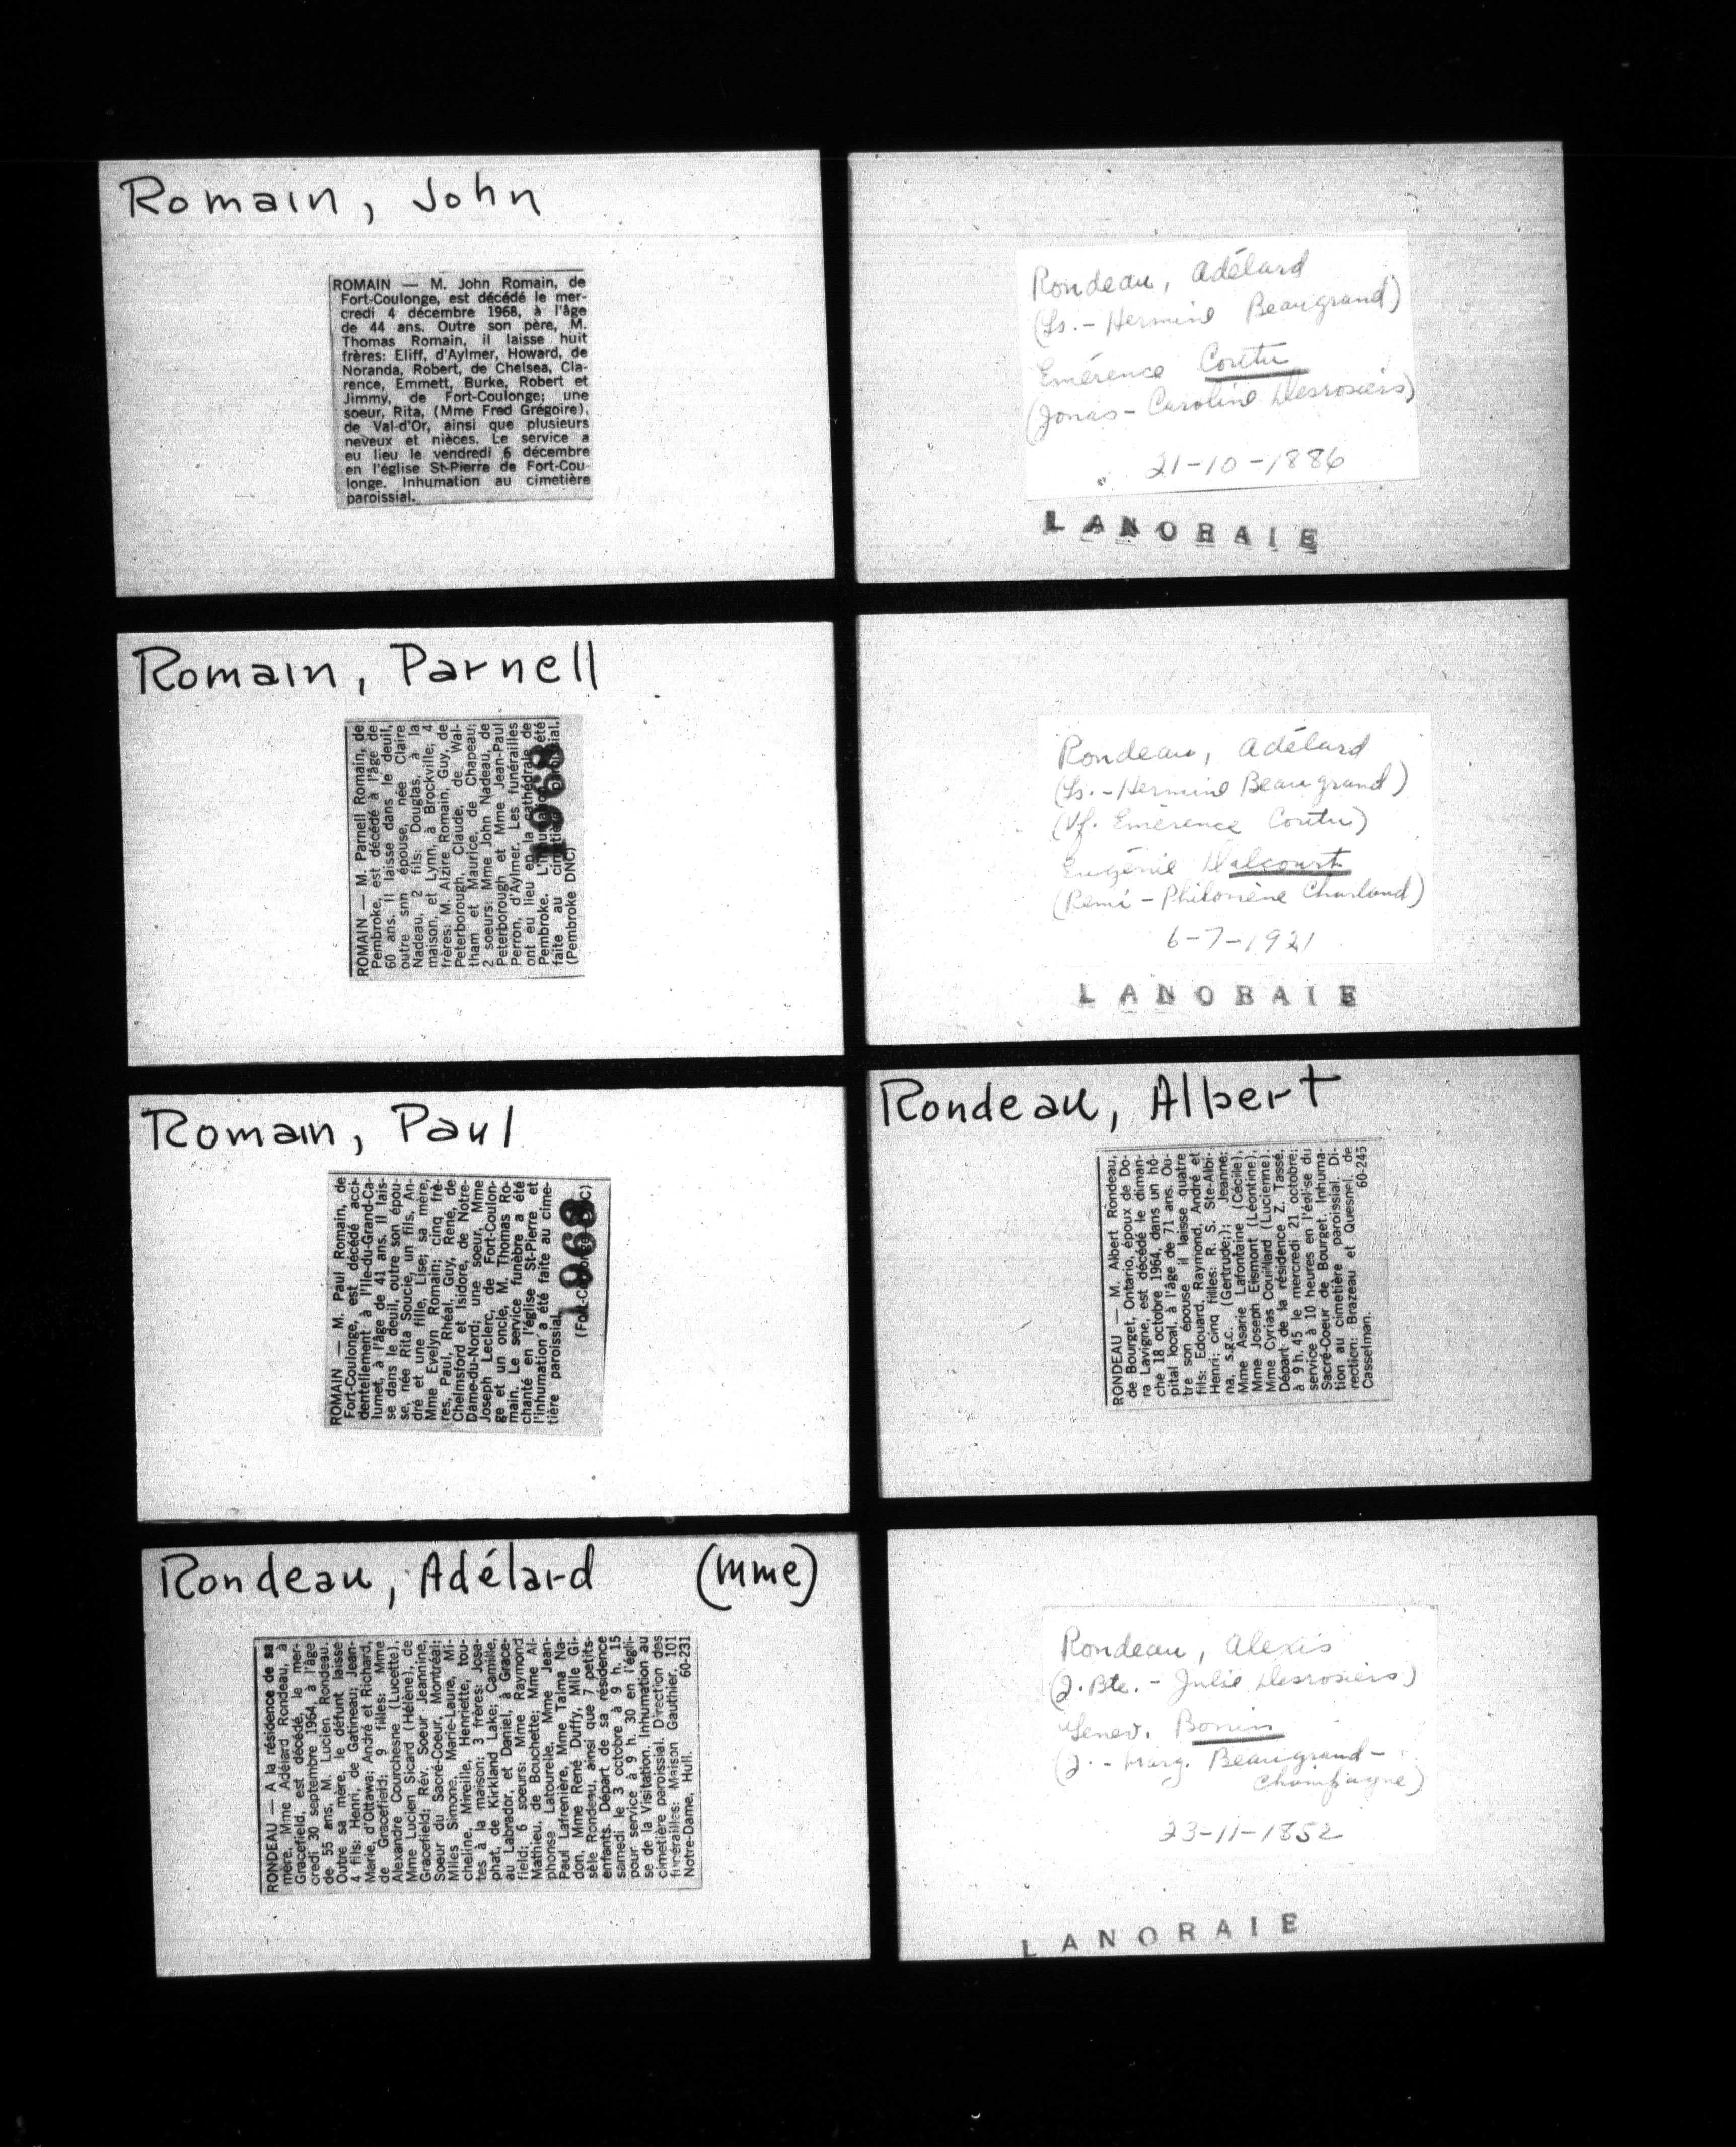 Romain, John
ROMAIN — M. John Romain, de
Fort-Coulonge, est décédé le mer-
credi 4 décembre 1968, à l'âge
de 44 ans. Outre son père, M.
Thomas Romain, il laisse huit
frères: Eliff, d'Aylmer, Howard, de
Noranda, Robert, de Chelsea, Cla-
rence, Emmett, Burke, Robert et
Jimmy, de Fort-Coulonge; une
soeur, Rita, (Mme Fred Grégoire),
de Val-d'Or, ainsi que plusieurs
neveux et nièces. Le service a
eu lieu le vendredi 6 décembre
en l'église St-Pierre de Fort-Cou-
longe. Inhumation au cimetière
paroissial.
Romain, Parnell
ROMAIN — M. Parnell Romain, de
Pembroke, est décédé à l'âge de
60 ans. Il laisse dans le deuil,
outre snn épouse, née Claire
Nadeau, 2 fils: Douglas, à la
maison, et Lynn, à Brockville; 4
frères: M. Alzire Romain, Guy, de
Peterborough, Claude, de Wal-
tham et Maurice, de Chapeau;
2 soeurs: Mme John Nadeau, de
Peterborough et Mme Jean-Paul
Perron, d'Aylmer. Les funérailles
ont eu lieu en la cathédrale de
Pembroke. L'inhumation a été
faite au cimetière paroissial.
(Pembroke DNC)
1968
Romain, Paul
ROMAIN — M. Paul Romain, de
Fort-Coulonge, est décédé acci-
dentellement à l'Ile-du-Grand-Ca-
lumet, à l'âge de 41 ans. Il lais-
se dans le deuil, outre son épou-
se, née Rita Soucie, un fils, An-
dré et une fille, Lise; sa mère,
Mme Evelyn Romain; cinq frè-
res, Paul, Rhéal, Guy, René, de
Chelmsford et Isidore, de Notre-
Dame-du-Nord; une soeur, Mme
Joseph Leclerc, de Fort-Coulon-
ge et un oncle, M. Thomas Ro-
main. Le service funèbre a été
chanté en l'église St-Pierre et
l'inhumation a été faite au cime-
tière paroissial.
1968
Rondeau, Adélard (Mme)
RONDEAU — A la résidence de sa
mère, Mme Adélard Rondeau, à
Gracefield, est décédé, le mer-
credi 30 septembre 1964, à l'âge
de 55 ans, M. Lucien Rondeau.
Outre sa mère, le défunt laisse
4 fils: Henri, de Gatineau; Jean-
Marie, d'Ottawa; André et Richard,
de Gracefield; 9 filles: Mme
Alexandre Courchesne (Lucette),
Mme Lucien Sicard (Hélène), de
Gracefield; Rév. Soeur Jeannine,
Soeur du Sacré-Coeur, Montréal;
Mlles Simone, Marie-Laure, Mi-
cheline, Mireille, Henriette, tou-
tes à la maison; 3 frères: Josa-
phat, de Kirkland Lake; Camille,
au Labrador, et Daniel, à Grace-
field; 6 soeurs: Mme Raymond
Mathieu, de Bouchette; Mme Al-
phonse Latourelle, Mme Jean-
Paul Lafrenière, Mme Talma Na-
don, Mme René Duffy, Mlle Gi-
sèle Rondeau, ainsi que 7 petits-
enfants. Départ de sa résidence
samedi le 3 octobre à 9 h. 15
pour service à 9 h. 30 en l'égli-
se de la Visitation. Inhumation au
cimetière paroissial. Direction des
funérailles: Maison Gauthier, 101
Notre-Dame, Hull. 60-231
Rondeau, Adélard
(Ls. - Hermine Beaugrand)
Emérence Coutu
(Jonas - Caroline Desrosiers)
21-10-1886
LANORAIE
Rondeau, Adélard
(Ls. - Hermine Beaugrand)
(Vf. Emérence Coutu)
Eugénie Dalcourt
(Rémi - Philomène Charland)
6-7-1921
LANORAIE
Rondeau, Albert
RONDEAU — M. Albert Rondeau,
de Bourget, Ontario, époux de Do-
ra Lavigne, est décédé le diman-
che 18 octobre 1964, dans un hô-
pital local, à l'âge de 71 ans. Ou-
tre son épouse il laisse quatre
fils: Edouard, Raymond, André et
Henri; cinq filles: R. S. Ste-Albi-
na, s.g.c. (Gertrude;); Jeanne;
Mme Asarie Lafontaine (Cécile),
Mme Joseph Eismont (Léontine),
Mme Cyrias Couillard (Lucienne).
Départ de la résidence Z. Tassé,
à 9 h. 45 le mercredi 21 octobre;
service à 10 heures en l'église du
Sacré-Coeur de Bourget. Inhuma-
tion au cimetière paroissial. Di-
rection: Brazeau et Quesnel, de
Casselman. 60-245
Rondeau, Alexis
(J. Bte. - Julie Desrosiers)
Genev. Bonin
(J. - Marg. Beaugrand-
Champagne)
23-11-1852
LANORAIE